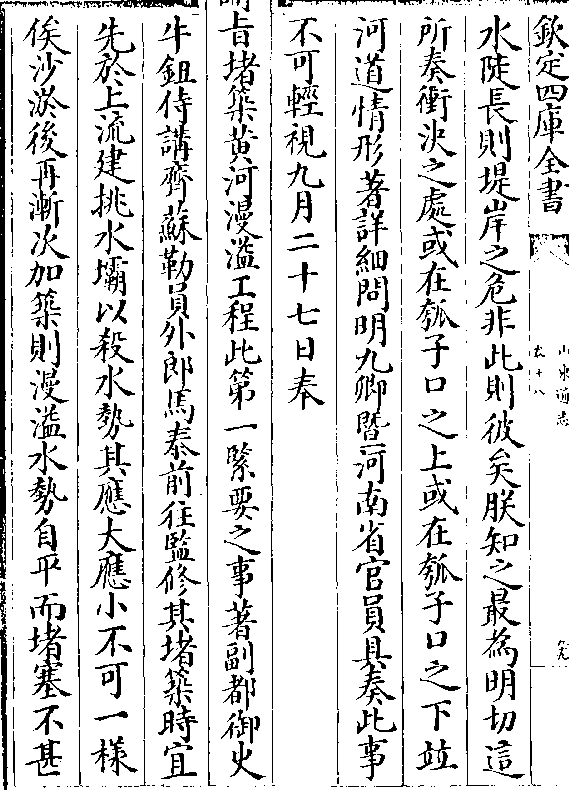 欽定四庫全書
山東通志
卷十八
水陡長則堤岸之危非此則彼矣朕知之最為明切這
所奏衝決之處或在瓠子口之上或在瓠子口之下並
河道情形著詳細問明九卿暨河南省官員具奏此事
不可輕視九月二十七日奉
諭旨堵築黃河漫溢工程此第一緊要之事著副都御史
牛鈕侍講齊蘇勒員外郎馬泰前往監修其堵築時宜
先於上流建挑水壩以殺水勢其應大應小不可一樣
俟沙淤後再漸次加築則漫溢水勢自平而堵塞不甚